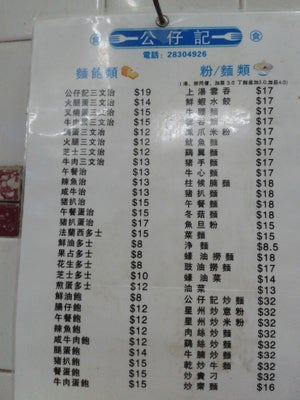 公仔記
電話：28304926
麵飽類
公仔記三文治 $19
火腿蛋三文治 $14
叉燒蛋三文治 $15
牛肉蛋三文治 $15
三文治 $12
火腿三文治 $12
芝士三文治 $12
牛肉三文治 $13
午餐治 $13
辣魚治 $13
咸牛治 $13
豬扒治 $15
午餐蛋治 $15
豬扒蛋治 $17
法蘭西多士 $15
鮮油多士 $8
果占多士 $8
花生多士 $8
芝士多士 $10
煎蛋多士 $12
鮮油飽 $8
腸仔飽 $12
午餐飽 $12
辣魚飽 $12
咸牛肉飽 $12
腸蛋飽 $14
豬扒飽 $15
餐蛋飽 $15
牛肉蛋飽 $15
粉/麵類
上湯雲吞 $17
鮮蝦水餃 $17
牛腩麵 $17
雲吞麵 $17
鳳爪米粉 $17
魷魚麵 $17
雞翼麵 $17
豬手麵 $17
牛心麵 $17
柱候腩麵 $18
豬扒麵 $18
午餐麵 $18
冬菇麵 $18
魚旦粉 $15
菜麵 $15
淨麵 $8.5
蠔油撈麵 $18
豉油撈麵 $17
蠔油菜 $14
油菜 $13
公仔記炒麵 $32
星州炒意粉 $32
星州炒米粉 $32
肉絲炒麵 $32
雞絲炒麵 $32
牛腩炒麵 $32
乾炒牛麵 $32
炒貴刁 $32
炒齋麵 $16